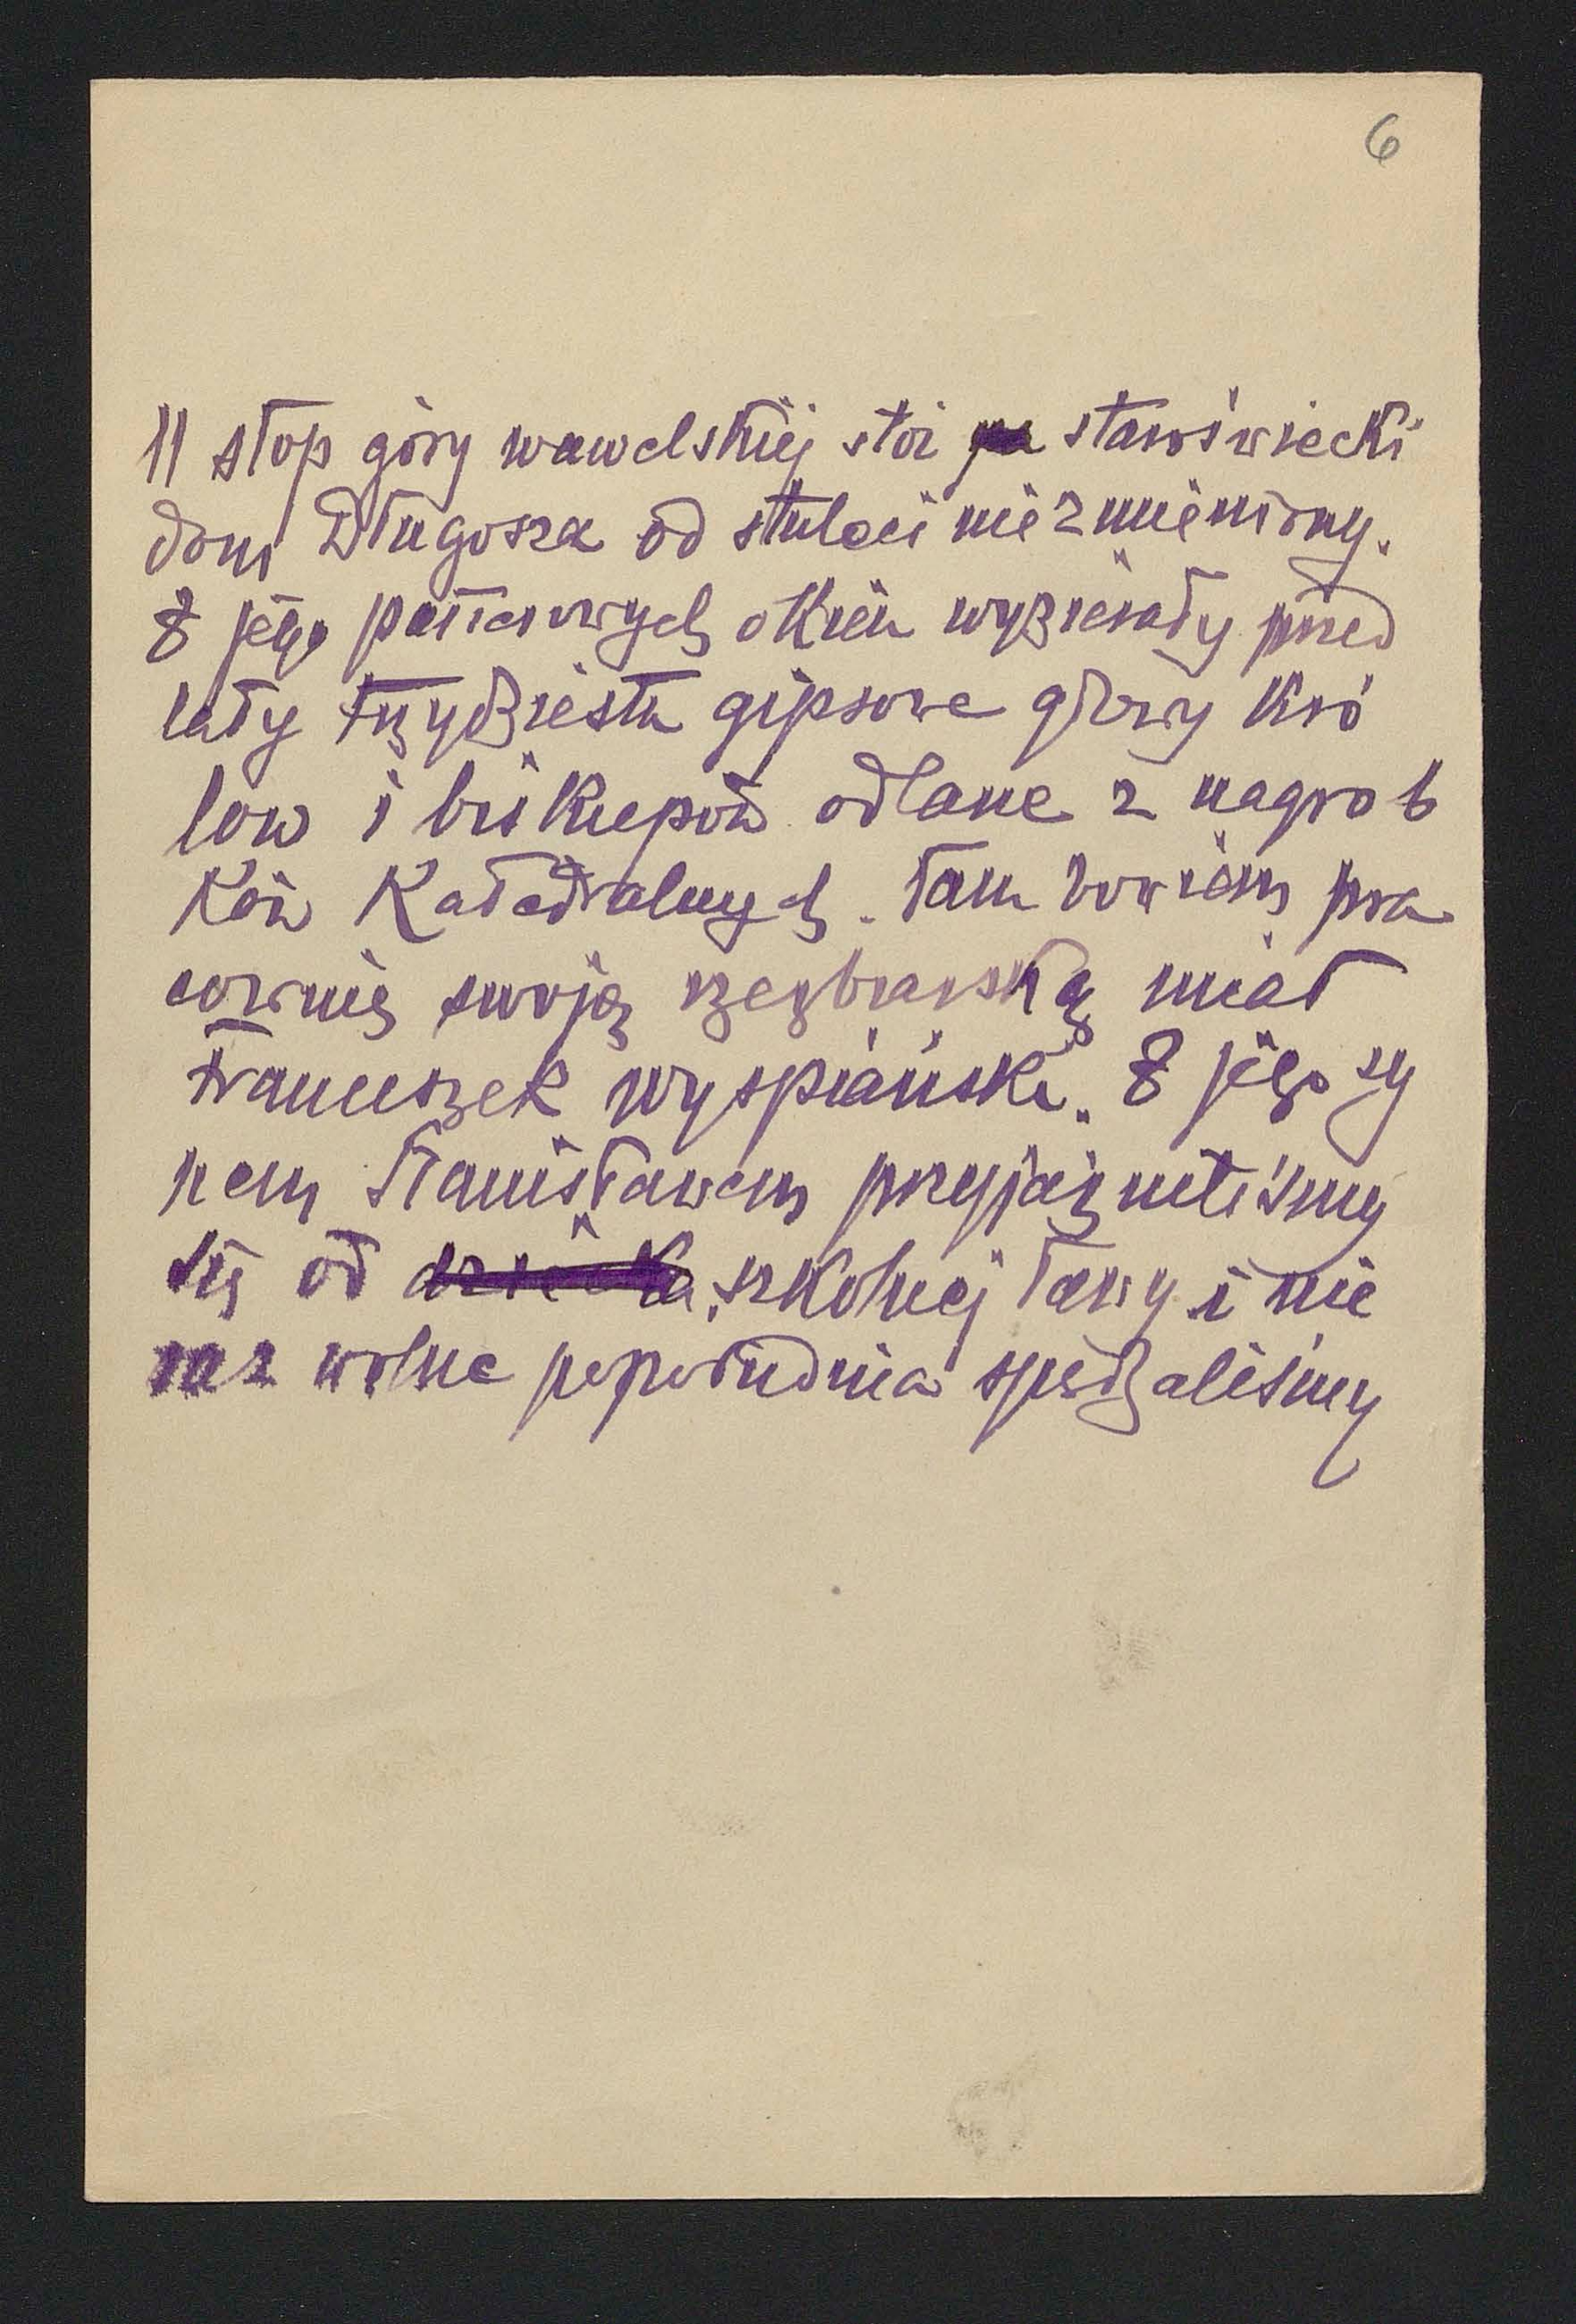 6
U stóp góry wawelskiej stoi staroświecki
dom Długosza od stuleci niezmieniony.
Z jego parterowych okien wyzierały przed
laty trzydziestu gipsowe głowy kró
lów i biskupów odlane z nagrob
ków Katedralnych. Tam bowiem pra
cownię swoją rzeźbiarską miał
Franciszek Wyspiański. Z jego sy
nem Stanisławem przyjaźniliśmy
się od dziecka szkolnej ławy i nie
raz wolne popołudnia spędzaliśmy